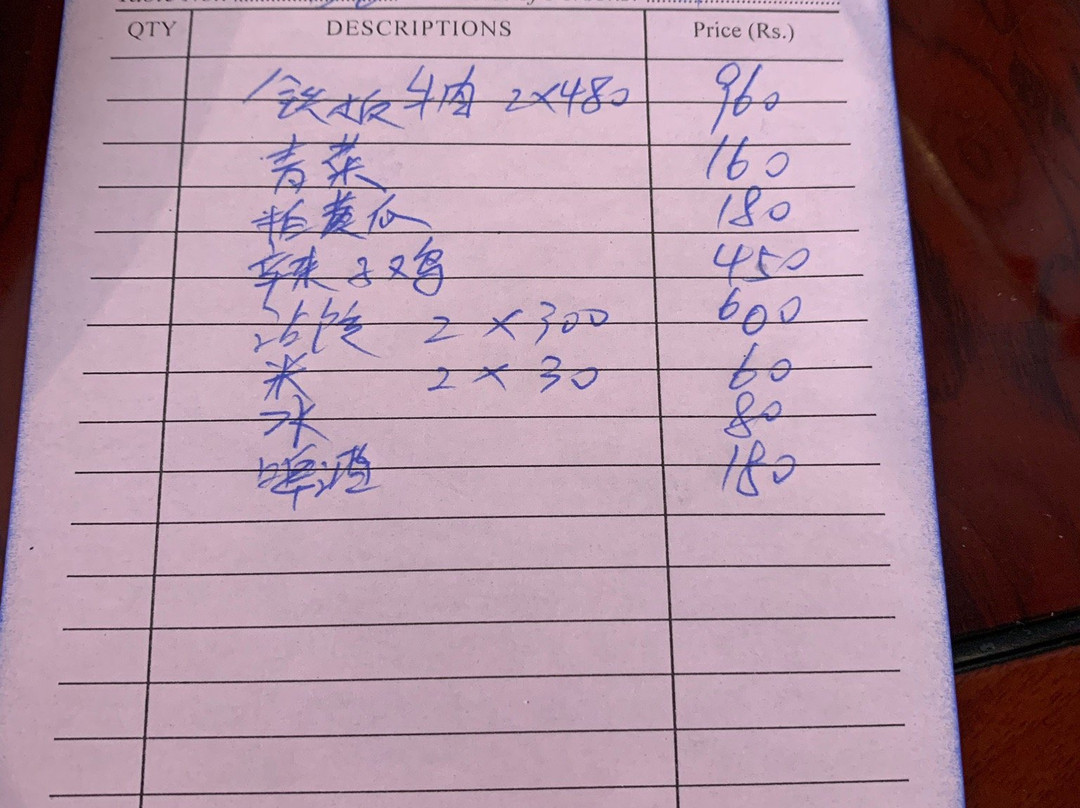 QTY DESCRIPTIONS Price (Rs.)
铁板牛肉 2×480 960
青菜 160
拍黄瓜 180
辣子鸡 450
2×300 600
米 2×30 60
水 80
啤酒 180